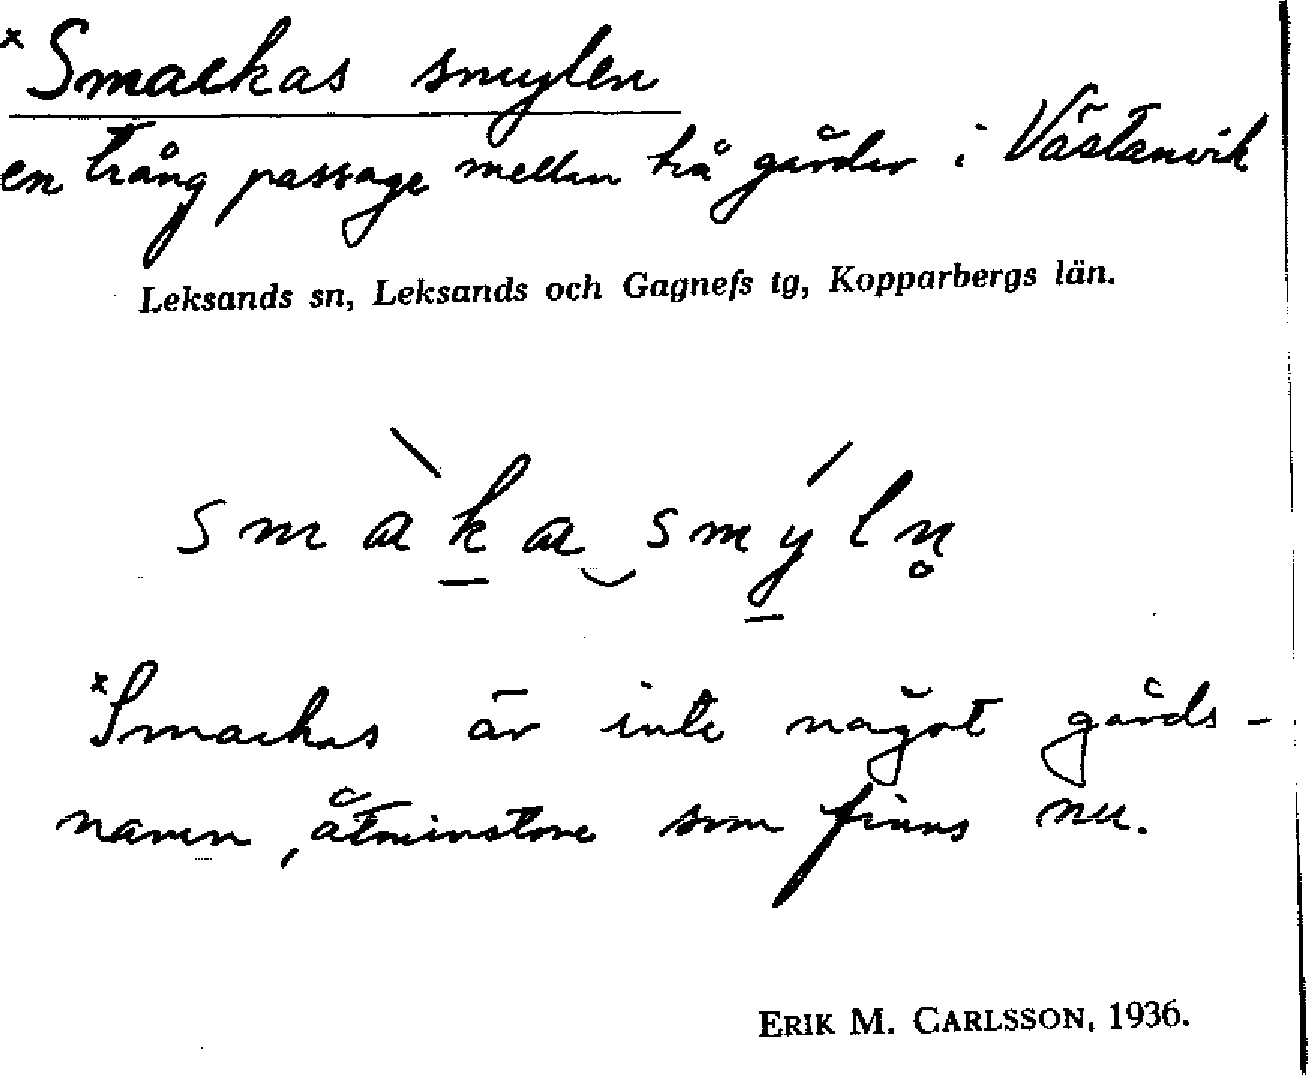 ×Smackas smylen
en trång passage mellan två gårdar i Västanvik
Leksands sn, Leksands och Gagnefs tg, Kopparbergs län.
smàka‿smýln̥
×Smackas är inte något gårds-
namn, åtminstone som finns nu.
ERIK M. CARLSSON, 1936.